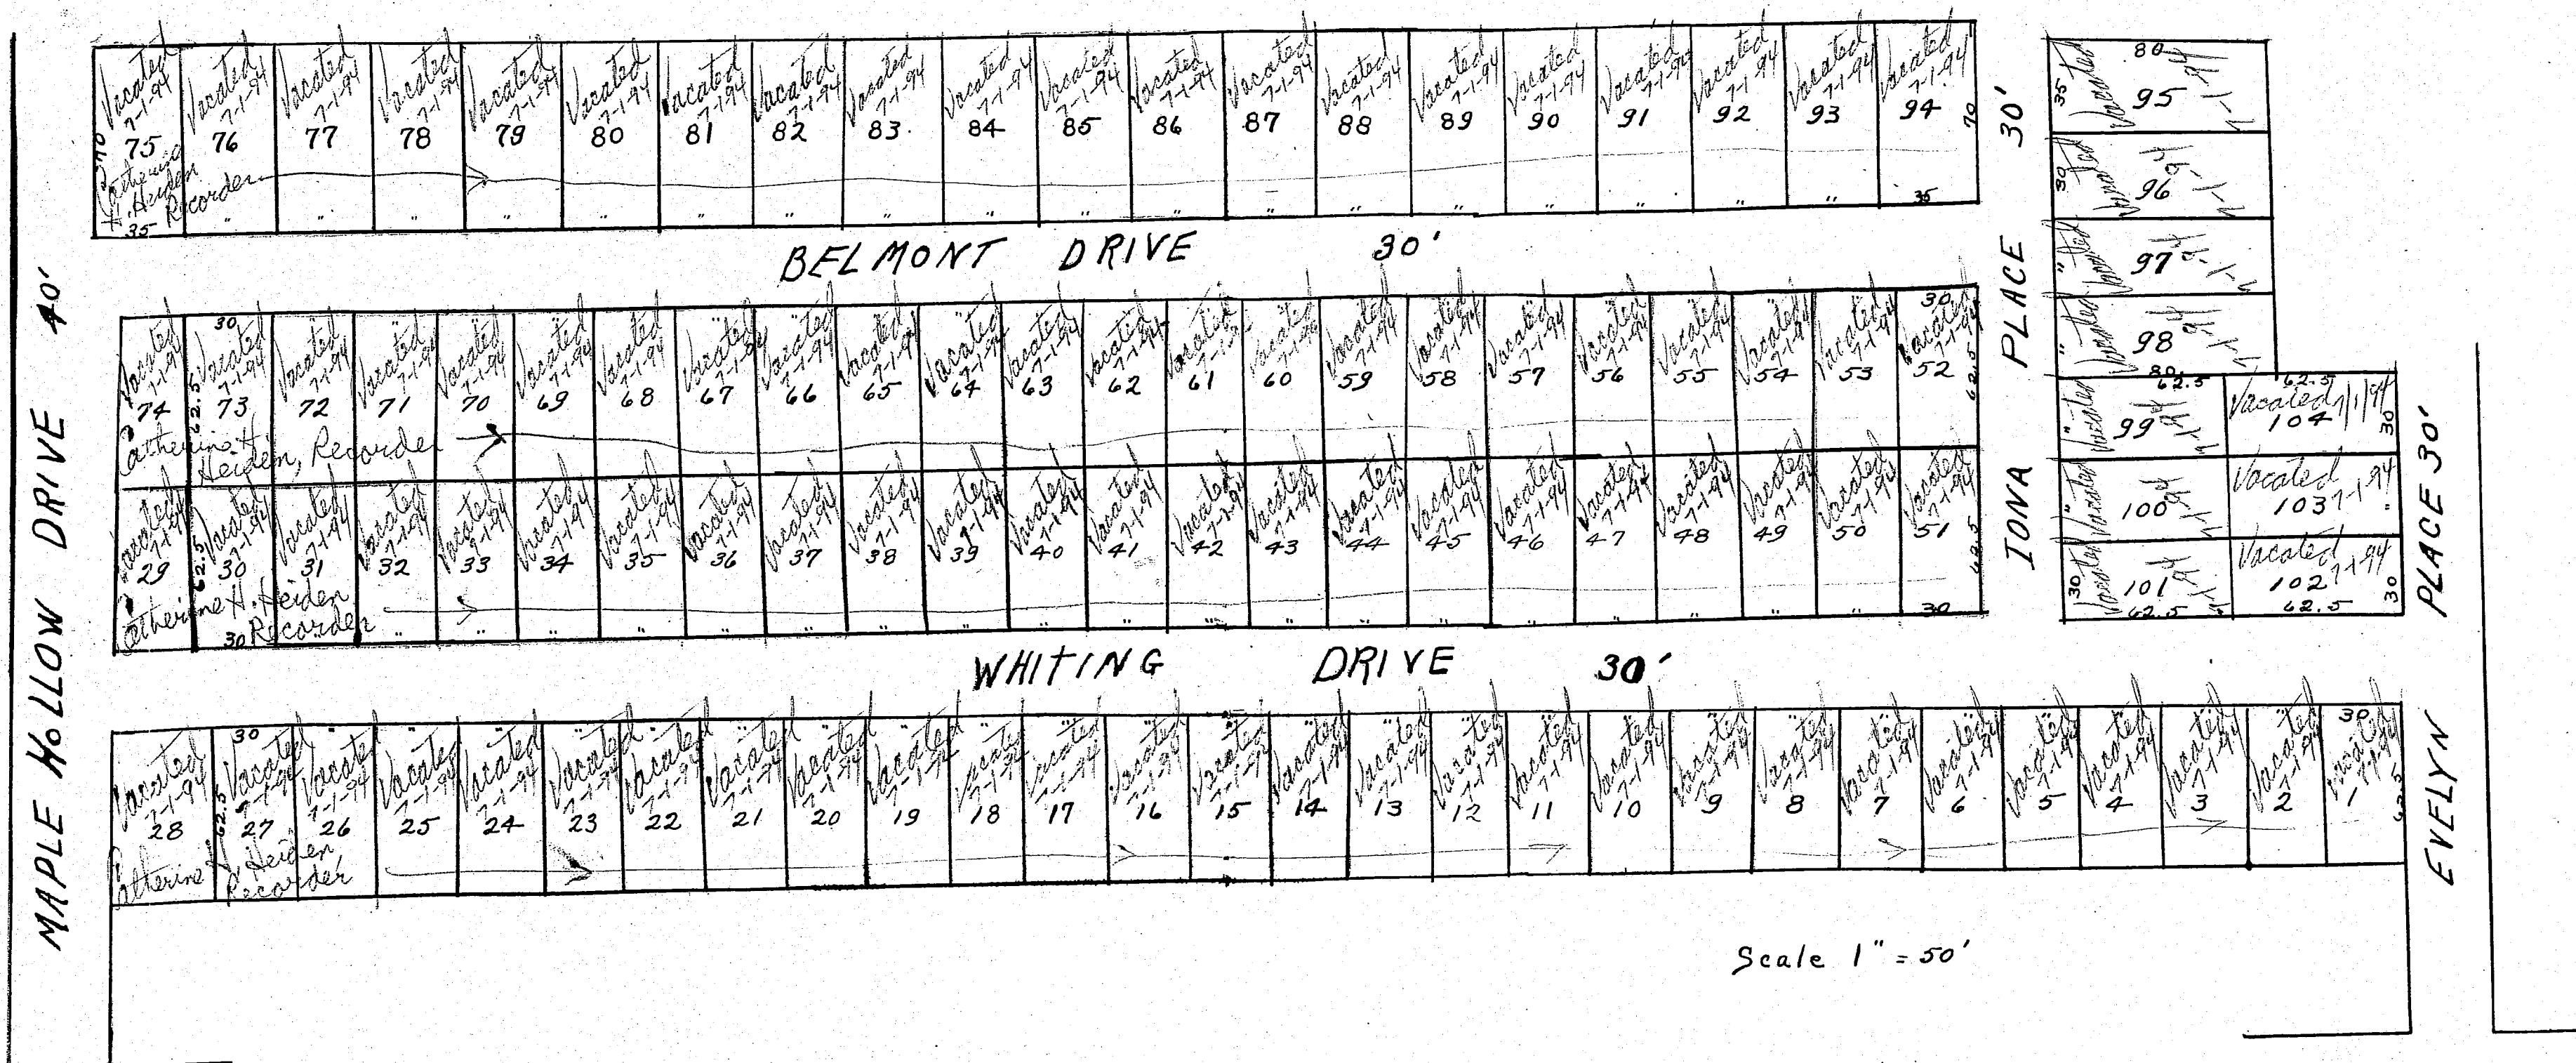 Vacated 7-1-94 75 70 35
Vacated 7-1-94 76 "
Vacated 7-1-94 77 "
Vacated 7-1-94 78 "
Vacated 7-1-94 79 "
Vacated 7-1-94 80 "
Vacated 7-1-94 81 "
Vacated 7-1-94 82 "
Vacated 7-1-94 83 "
Vacated 7-1-94 84 "
Vacated 7-1-94 85 "
Vacated 7-1-94 86 "
Vacated 7-1-94 87 "
Vacated 7-1-94 88 "
Vacated 7-1-94 89 "
Vacated 7-1-94 90 "
Vacated 7-1-94 91 "
Vacated 7-1-94 92 "
Vacated 7-1-94 93 "
Vacated 7-1-94 94 70 35
Catherine
H. Heiden
Recorder
BELMONT DRIVE 30'
Vacated 7-1-94 74
30 Vacated 7-1-94 62.5 73
Vacated 7-1-94 72
Vacated 7-1-94 71
Vacated 7-1-94 70
Vacated 7-1-94 69
Vacated 7-1-94 68
Vacated 7-1-94 67
Vacated 7-1-94 66
Vacated 7-1-94 65
Vacated 7-1-94 64
Vacated 7-1-94 63
Vacated 7-1-94 62
Vacated 61
Vacated 7-1-94 60
Vacated 7-1-94 59
Vacated 7-1-94 58
Vacated 7-1-94 57
Vacated 7-1-94 56
Vacated 7-1-94 55
Vacated 7-1-94 54
Vacated 7-1-94 53
30 Vacated 7-1-94 52 62.5
Catherine H.
Heiden, Recorder
Vacated 7-1-94 29
Vacated 7-1-94 62.5 30 30
Vacated 7-1-94 31
Vacated 7-1-94 32 "
Vacated 7-1-94 33 "
Vacated 7-1-94 34 "
Vacated 7-1-94 35 "
Vacated 7-1-94 36 "
Vacated 7-1-94 37 "
Vacated 7-1-94 38 "
Vacated 7-1-94 39 "
Vacated 7-1-94 40 "
Vacated 7-1-94 41 "
Vacated 7-1-94 42 "
Vacated 7-1-94 43 "
Vacated 7-1-94 44 "
Vacated 7-1-94 45 "
Vacated 7-1-94 46 "
Vacated 7-1-94 47 "
Vacated 7-1-94 48 "
Vacated 7-1-94 49 "
Vacated 7-1-94 50 "
Vacated 7-1-94 51 62.5 30
Catherine H. Heiden
Recorder
WHITING DRIVE 30'
Vacated 7-1-94 28
30 Vacated 7-1-94 62.5 27
Vacated 7-1-94 26
Vacated 7-1-94 25
Vacated 7-1-94 24
Vacated 7-1-94 23
Vacated 7-1-94 22
Vacated 7-1-94 21
Vacated 7-1-94 20
Vacated 7-1-94 19
Vacated 7-1-94 18
Vacated 7-1-94 17
Vacated 7-1-94 16
Vacated 7-1-94 15
Vacated 7-1-94 14
Vacated 7-1-94 13
Vacated 7-1-94 12
Vacated 7-1-94 11
Vacated 7-1-94 10
Vacated 7-1-94 9
Vacated 7-1-94 8
Vacated 7-1-94 7
Vacated 7-1-94 6
Vacated 7-1-94 5
Vacated 7-1-94 4
Vacated 7-1-94 3
Vacated 7-1-94 2
30 Vacated 7-1-94 1 62.5
Catherine H. Heiden
Recorder
MAPLE HOLLOW DRIVE 40'
IONA PLACE 30'
80 35 Vacated 95 7-1-94
30 Vacated 96 7-1-94
" Vacated 97 7-1-94
" Vacated 98 7-1-94 80
62.5 " Vacated 99 7-1-94
" Vacated 100 7-1-94
30 Vacated 101 7-1-94 62.5
62.5 Vacated 7/1/94 104 30
Vacated 103 7-1-94
Vacated 102 7-1-94 62.5 30
EVELYN PLACE 30'
Scale 1" = 50'